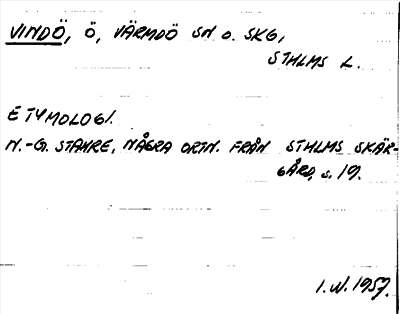 VINDÖ, Ö, VÄRMDÖ SN o. SKG,
STHLMS L.
ETYMOLOGI.
N.-G. STAHRE, NÅGRA ORTN. FRÅN STHLMS SKÄR-
GÅRD, s. 19.
1.W.1957.